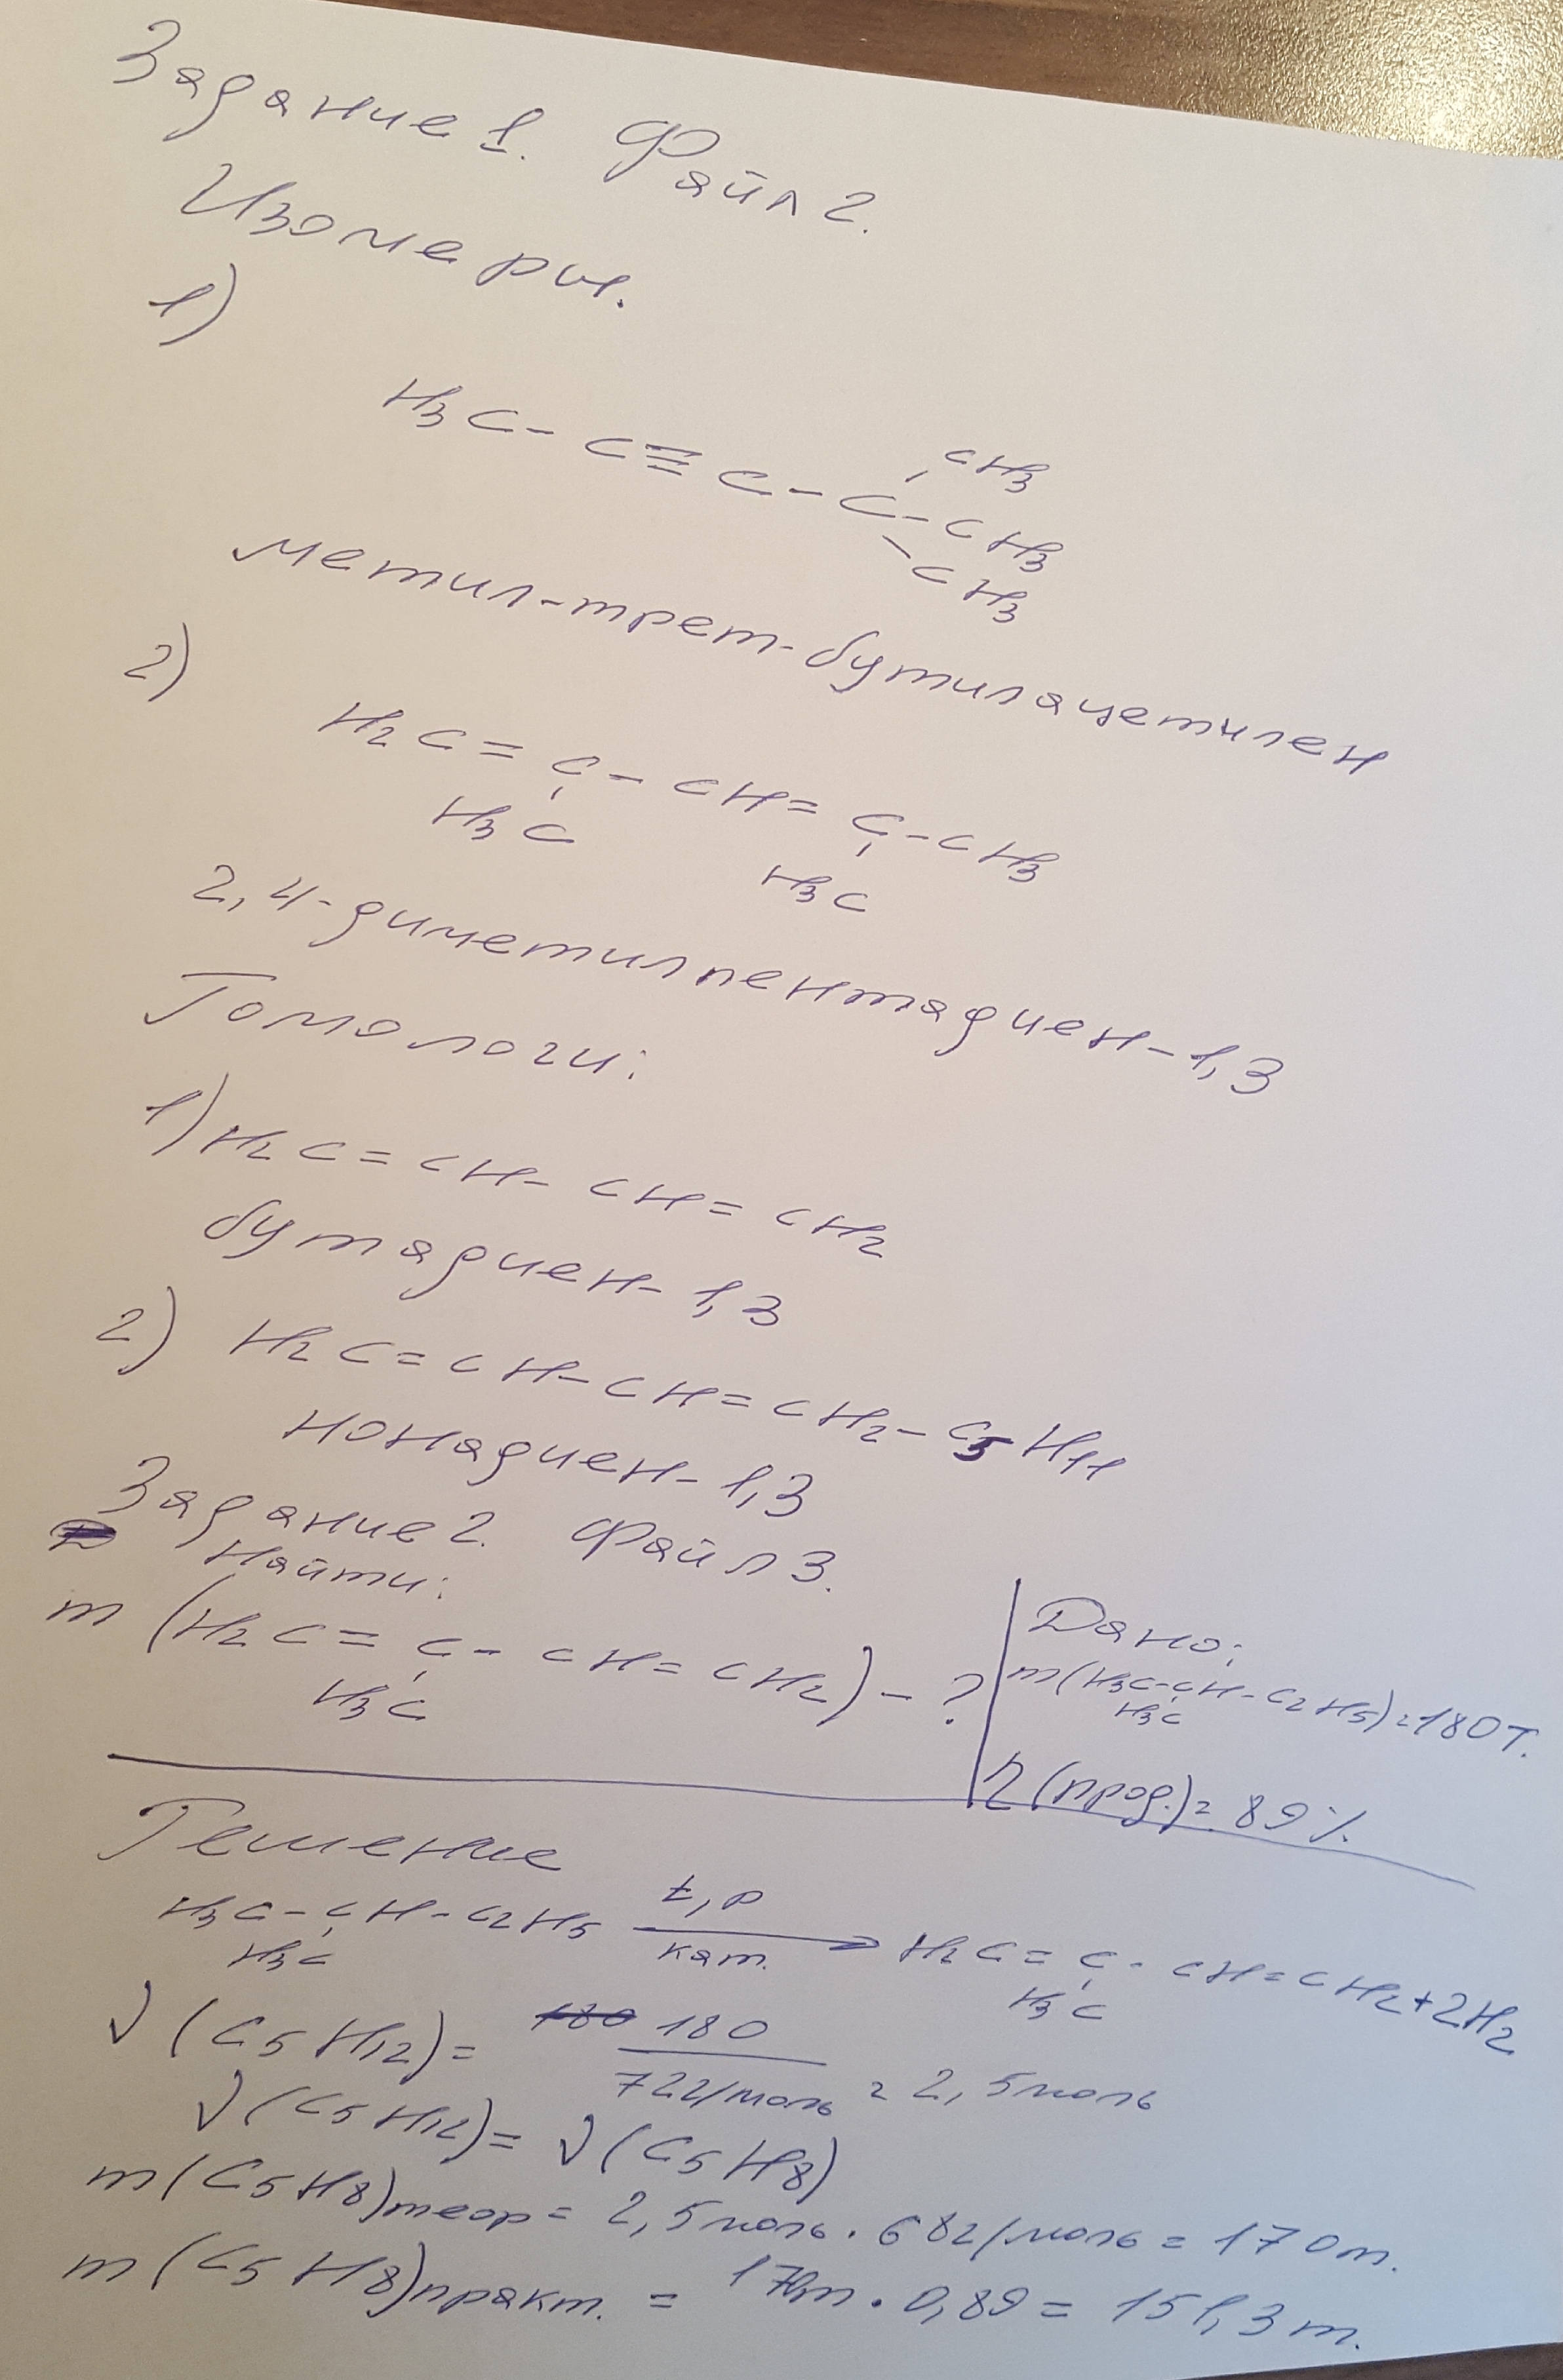 Задание 1. Файл 2.
Изомеры.
1)
CH3
H3C - C ≡ C - C - CH3
CH3
метил-трет-бутилацетилен
2)
H2C = C - CH = C - CH3
H3C H3C
2,4-диметилпентадиен-1,3
Гомологи:
1) H2C = CH - CH = CH2
бутадиен-1,3
2) H2C = CH - CH = CH2 - C5H11
нонадиен-1,3
Задание 2. Файл 3.
Найти:
m (H2C = C - CH = CH2) - ?
H3C
Дано:
m (H3C - CH - C2H5) = 180т.
H3C
η (прод.) = 89%.
Решение
H3C - CH - C2H5 t, p кат. → H2C = C - CH = CH2 + 2H2
H3C H3C
ν (C5H12) = 180 / 72г/моль = 2,5моль
ν (C5H12) = ν (C5H8)
m (C5H8)теор = 2,5моль · 68г/моль = 170т.
m (C5H8)практ. = 170т · 0,89 = 151,3т.